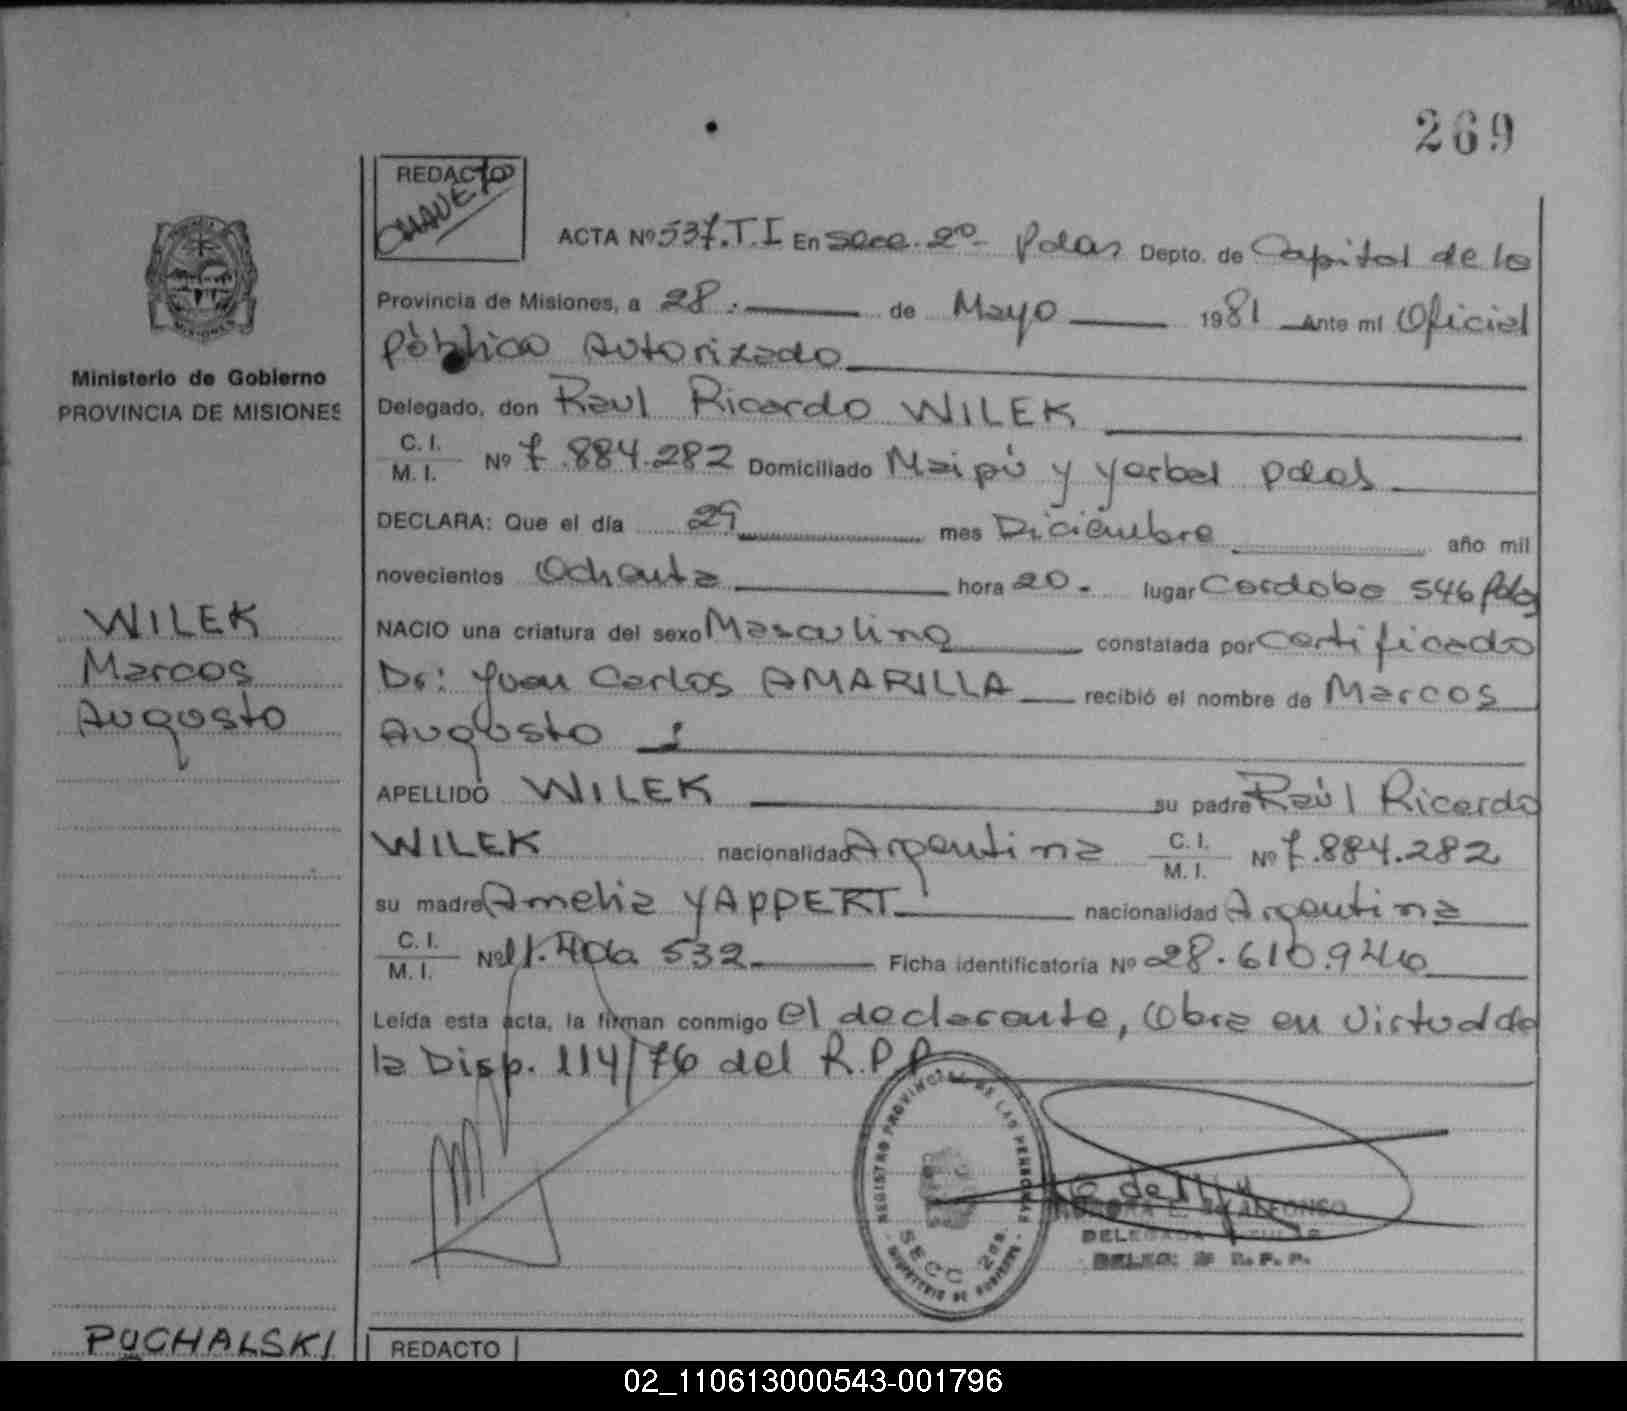 269
REDACTO
CHAVETO
ACTA Nº 537.T.I En Secc. 2º - Pdas Depto. de Capital de la
Provincia de Misiones, a 28. de Mayo 1981 Ante mí Oficial
Público Autorizado
Ministerio de Gobierno
PROVINCIA DE MISIONES
Delegado, don Raul Ricardo WILEK
C. I.
M. I. Nº 7.884.282 Domiciliado Maipú y Yerbal Pdas
DECLARA: Que el día 29 mes Diciembre año mil
novecientos Ochenta hora 20. lugar Cordoba 546 Pdas
NACIO una criatura del sexo Masculino constatada por Certificado
Dr: Juan Carlos AMARILLA recibió el nombre de Marcos
Augusto
WILEK
Marcos
Augusto
APELLIDO WILEK su padre Raúl Ricardo
WILEK nacionalidad Argentina C. I.
M. I. Nº 7.884.282
su madre Amelia YAPPERT nacionalidad Argentina
C. I.
M. I. Nº 532 Ficha identificatoria Nº 28.610.940
Leída esta acta, la firman conmigo el declarante, Obra en Virtud de
la Disp. 114/76 del R.P.P
REGISTRO PROVINCIAL DE LAS PERSONAS
SECC 2da.
MINISTERIO DE GOBIERNO
ALFONSO
DELEGADA TITULAR
DELEG. 2ª R.P.P.
PUCHALSKI
REDACTO
02_110613000543-001796